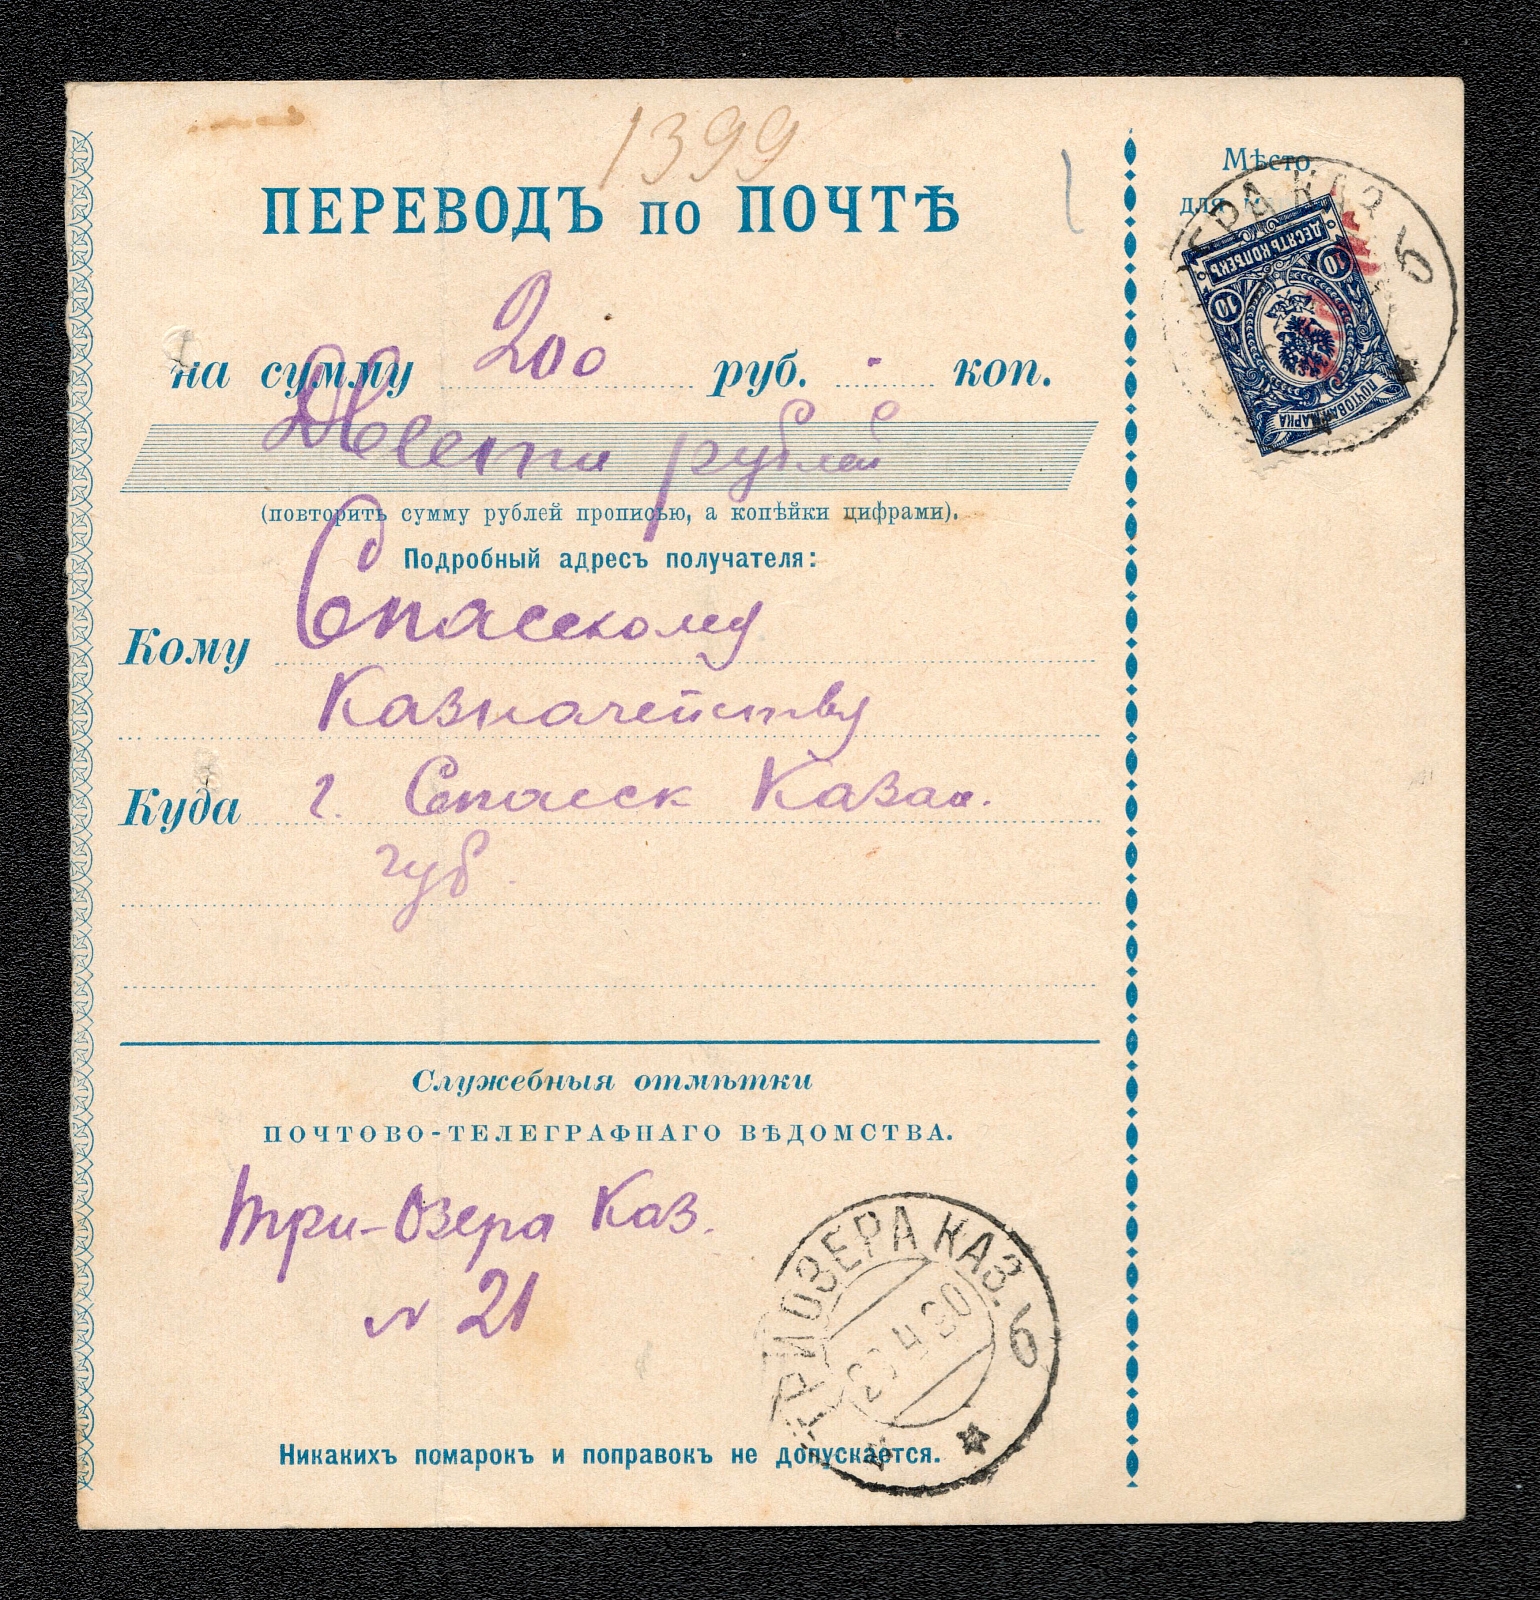 1399
ПЕРЕВОДЪ по ПОЧТѢ
на сумму 200 руб. - коп.
Двести рублей
(повторить сумму рублей прописью, а копѣйки цифрами).
Подробный адресъ получателя:
Кому Спасскому
Казначейству
Куда г. Спасск Казан.
губ.
Служебныя отмѣтки
ПОЧТОВО-ТЕЛЕГРАФНАГО ВѢДОМСТВА.
Три-Озера Каз.
№ 21
ТРИОЗЕРА КАЗ. б
Никакихъ помарокъ и поправокъ не допускается.
Мѣсто
для
РА КАЗ б
ДЕСЯТЬ КОПѢЕКЪ
10 10
ПОЧТОВАЯ МАРКА